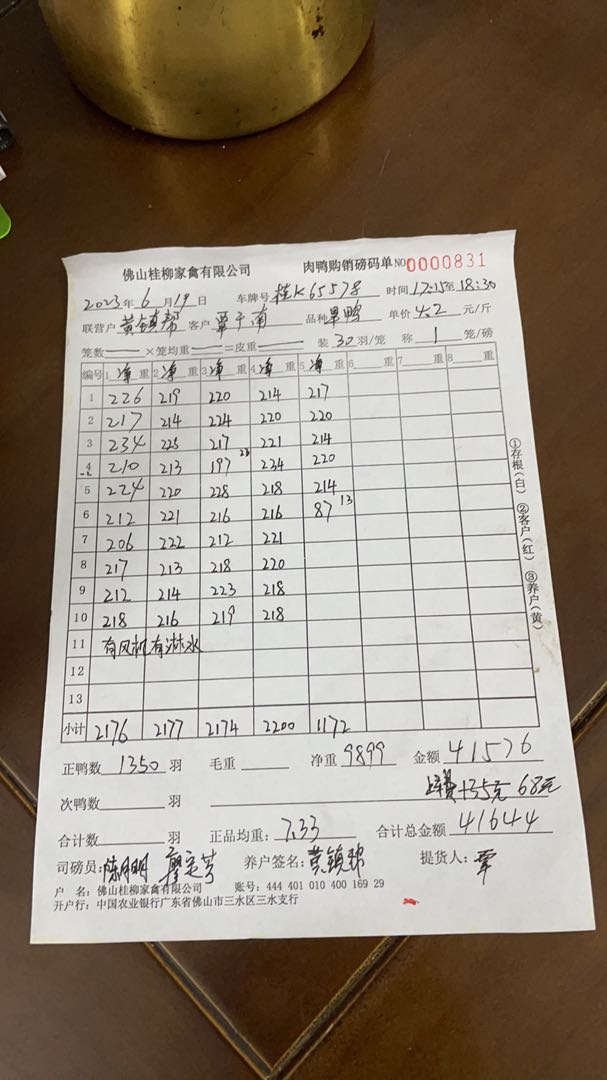 佛山桂柳家禽有限公司 肉鸭购销磅码单 NO 0000831
2023年6月19日 车牌号 桂K65578 时间 17:15至18:30
联营户 黄镇帮 客户 覃干南 品种 单价 4.2 元/斤
笼数 ×笼均重 =皮重 装 30 羽/笼 称 1 笼/磅
编号 1 净重 2 净重 3 净重 4 净重 5 净重 6 重 7 重 8 重
1 226 219 220 214 217
2 217 214 224 220 220
3 234 225 217 221 214
4 210 213 197 23 234 220
5 224 220 228 218 214
6 212 221 216 216 87 13
7 206 222 212 221
8 217 213 218 220
9 212 214 223 218
10 218 216 219 218
11 有风机 有淋水
12
13
小计 2176 2177 2174 2200 1172
①存根(白) ②客户(红) ③养户(黄)
正鸭数 1350 羽 毛重 净重 9899 金额 41576
次鸭数 羽 135元 68元
合计数 羽 正品均重: 7.33 合计总金额 41644
司磅员: 陈月明 养户签名: 黄镇帮 提货人: 覃
户 名: 佛山桂柳家禽有限公司 账号: 444 401 010 400 169 29
开户行: 中国农业银行广东省佛山市三水区三水支行